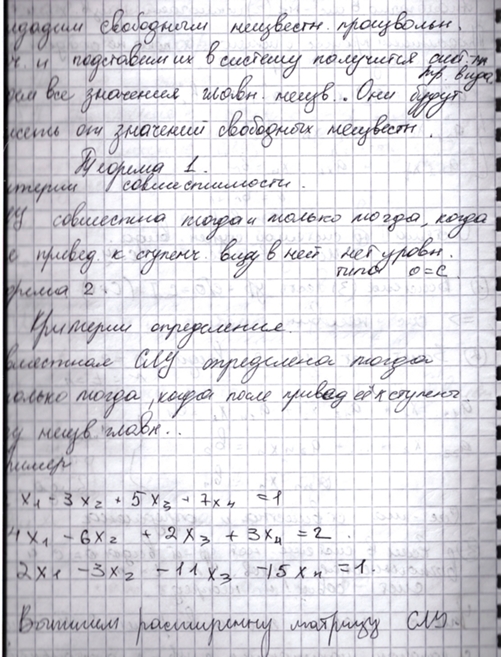 дадим свободным неизвестн. произвольн.
и подставим их в систему получится сист.
тр. вида
все значения главн. неизв.. Они будут
от значений свободных неизвестн.
Теорема 1.
терии совместимости.
У совместна тогда и только тогда, когда
привед. к ступенч. виду в ней нет уровн.
типа 0=C.
рема 2.
Критерии определения.
вместная СЛУ определена тогда
олько тогда, когда после привед её к ступенч.
у неизв. главн..
ример
x1 - 3x2 + 5x3 + 7x4 =1
4x1 - 6x2 + 2x3 + 3x4 = 2.
2x1 - 3x2 - 11x3 - 15x4 = 1.
Выпишем расширенну матрицу СЛУ.